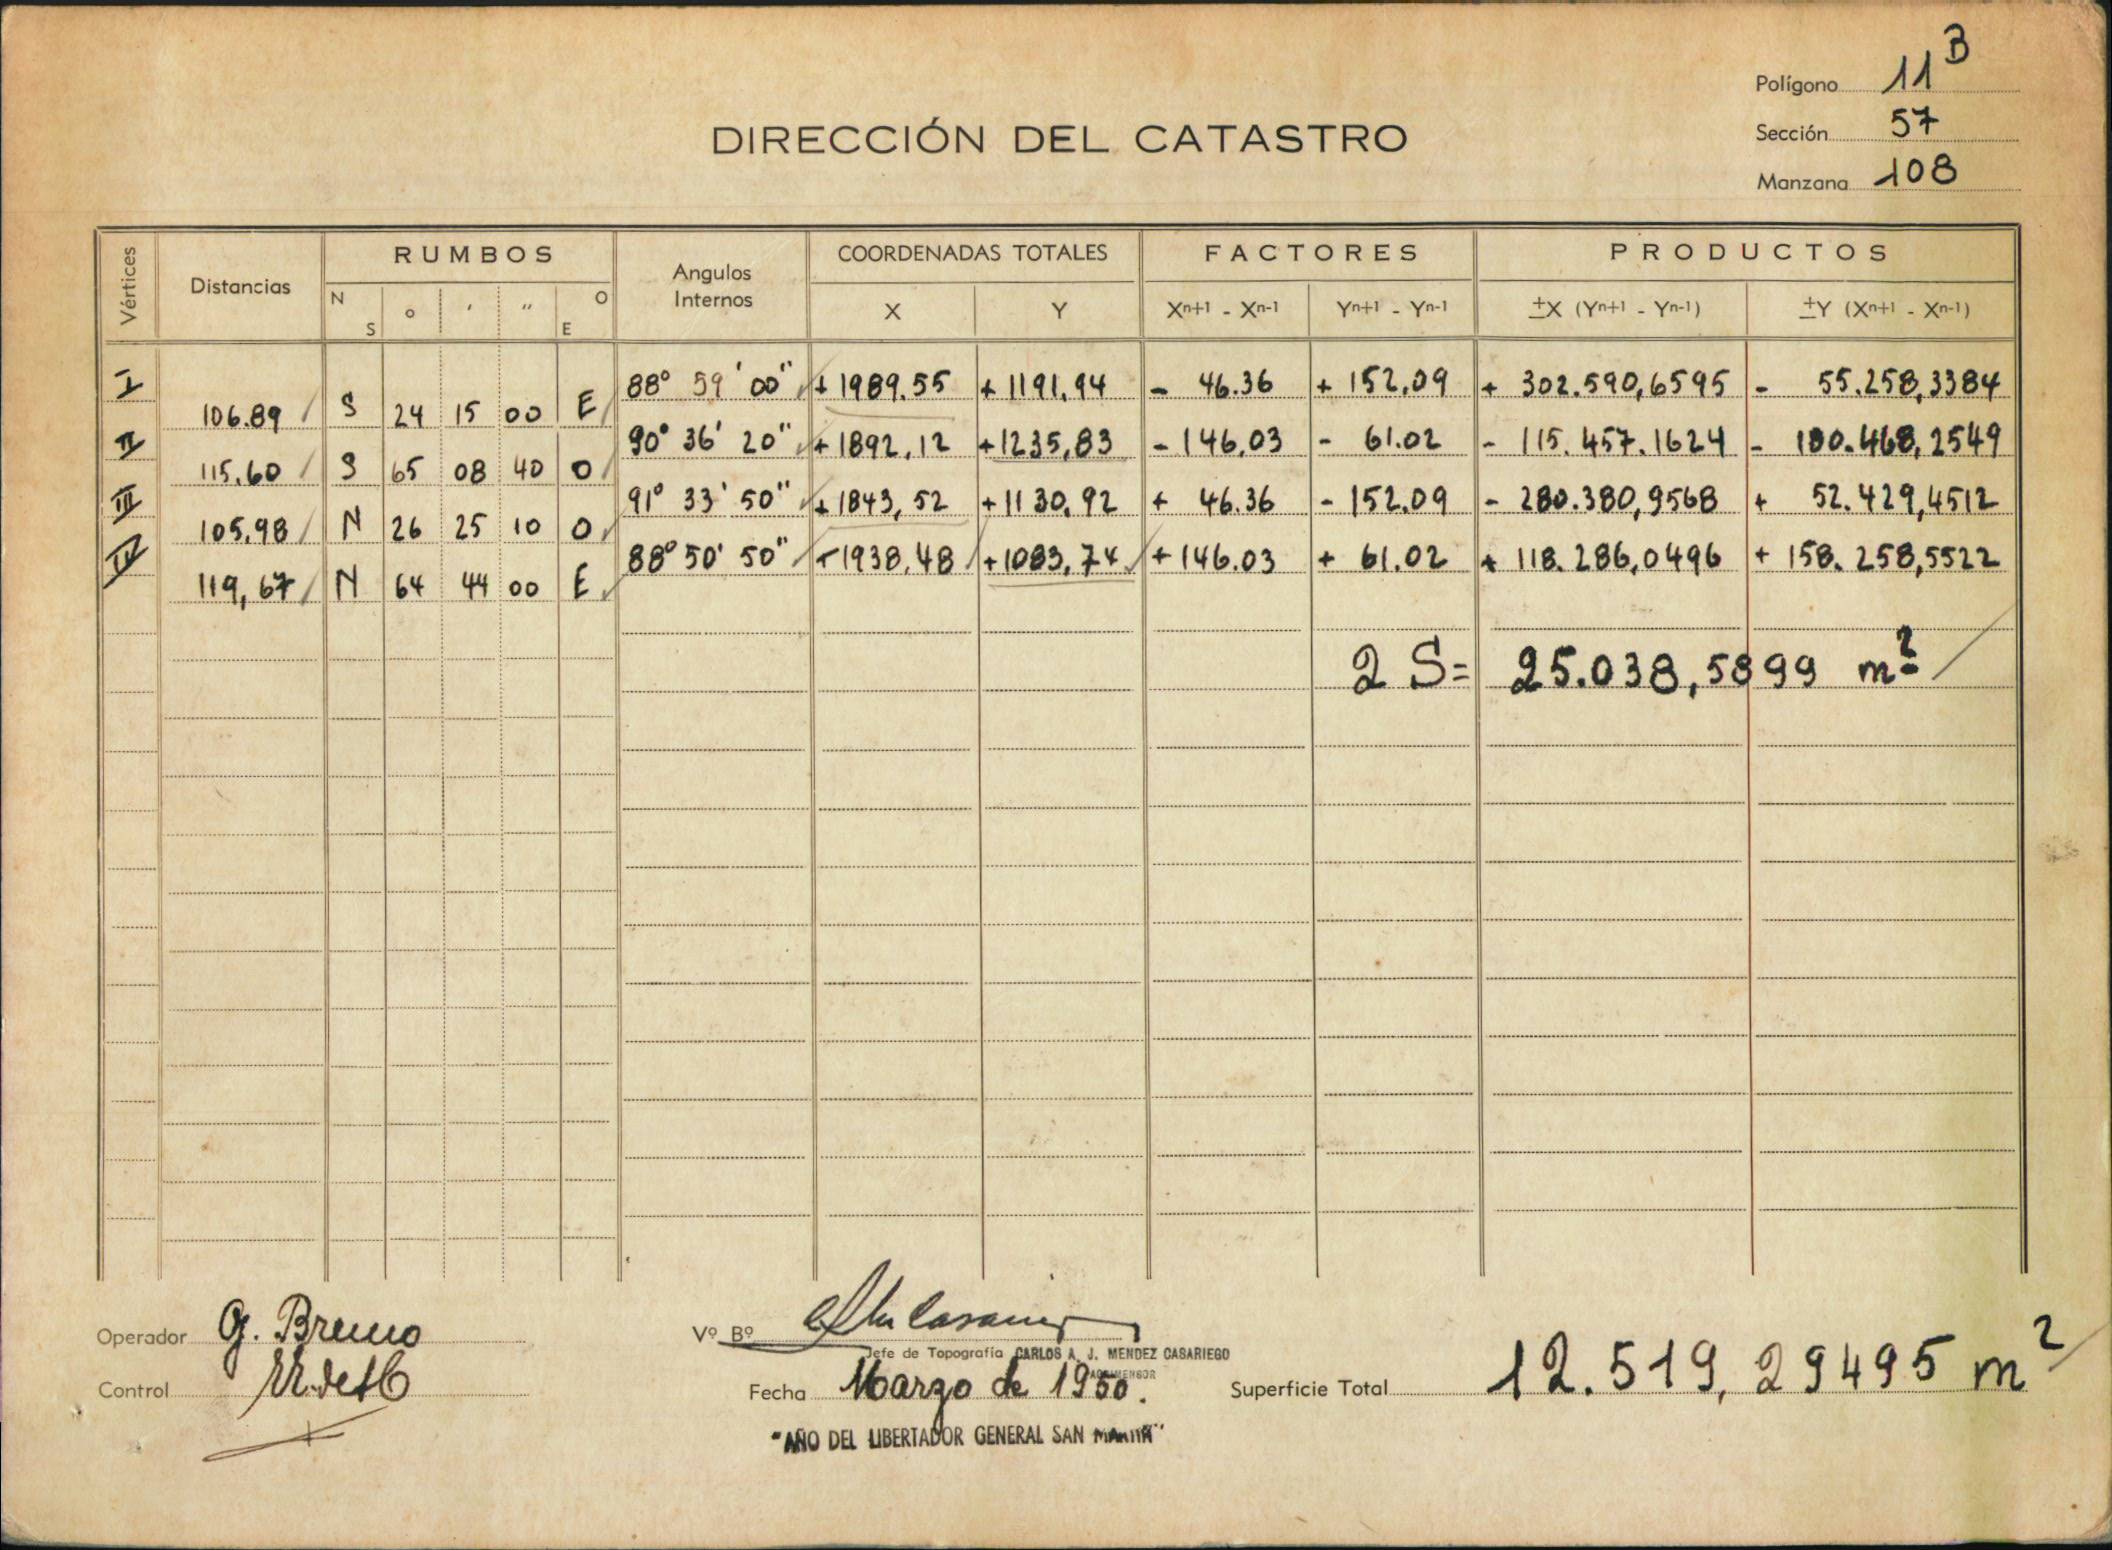 Polígono 11 B
Sección 57
Manzana 108
DIRECCIÓN DEL CATASTRO
Vértices Distancias RUMBOS Angulos Internos COORDENADAS TOTALES FACTORES PRODUCTOS
N S ° ' " O E X Y Xn+1 - Xn-1 Yn+1 - Yn-1 ±X (Yn+1 - Yn-1) ±Y (Xn+1 - Xn-1)
I 88° 59' 00" + 1989.55 + 1191.94 - 46.36 + 152.09 + 302.590,6595 - 55.258,3384
106.89 S 24 15 00 E
II 90° 36' 20" + 1892,12 + 1235,83 - 146,03 - 61.02 - 115.457.1624 - 180.468,2549
115.60 S 65 08 40 O
III 91° 33' 50" + 1843,52 + 1130,92 + 46.36 - 152.09 - 280.380,9568 + 52.429,4512
105,98 N 26 25 10 O
IV 88° 50' 50" + 1938,48 + 1083,74 + 146.03 + 61.02 + 118.286,0496 + 158.258,5522
119,67 N 64 44 00 E
2 S = 25.038,5899 m²
Operador G. Bruno
Control
Vº Bº
Jefe de Topografía CARLOS A. J. MENDEZ CASARIEGO
AGRIMENSOR
Fecha Marzo de 1950.
Superficie Total 12.519,29495 m²
"AÑO DEL LIBERTADOR GENERAL SAN MARTIN"